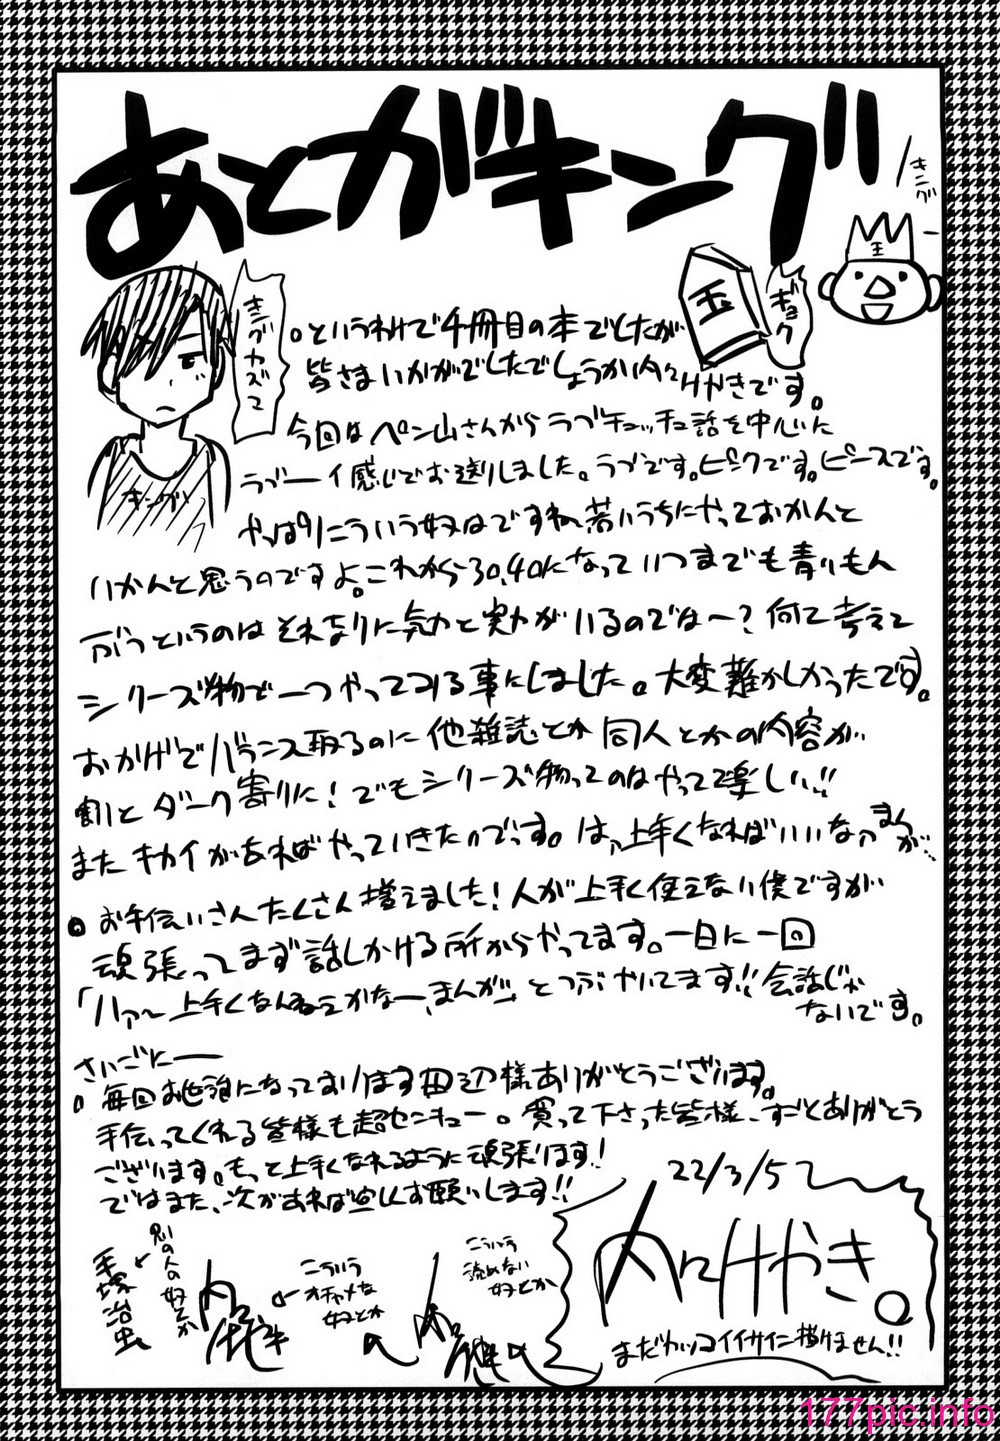 あとがキング
キング
王
玉
ギョク
キングカズって
キング
。というわけで4冊目の本でしたが
皆さまいかがでしたでしょうか内々けやきです。
今回はペン山さんからラブチュッチュ話を中心に
ラブーイ感じでお送りしました。ラブです。ピンクです。ピースです。
やっぱりこういう奴はですね若いうちにやっておかんと
いかんと思うのですよ。これから30,40になっていつまでも青いもん
ぶつというのはそれなりに気力と実力がいるのでは〜?何て考えて
シリーズ物で一つやってみる事にしました。大変難かしかったです。
おかげでバランス取るのに他雑誌とか同人とかの内容が
割とダーク寄りに!でもシリーズ物ってのはやってて楽しい!!
またキカイがあればやっていきたいです。はァ上手くなればいいなァまんが…
。お手伝いさんたくさん増えました!人が上手く使えない僕ですが
頑張ってまず話しかける所からやってます。一日に一回
「ハァ〜上手くなんねえかなー、まんが」とつぶやいてます!!会話じゃ
ないです。
さいごにー
。毎回お世話になっております田辺様ありがとうございます。
手伝ってくれる皆様も超センキュー。買って下さった皆様、すごとありがとう
ございます。もっと上手くなれるように頑張ります!
ではまた、次があれば宜しくお願いします!!
22/3/5
内々けやき。
まだカッコイイサイン描けません!!
こういう
読めない
奴とか
こういう
オチャメな
奴とか
別の人の奴とか
手塚治虫
177pic.info